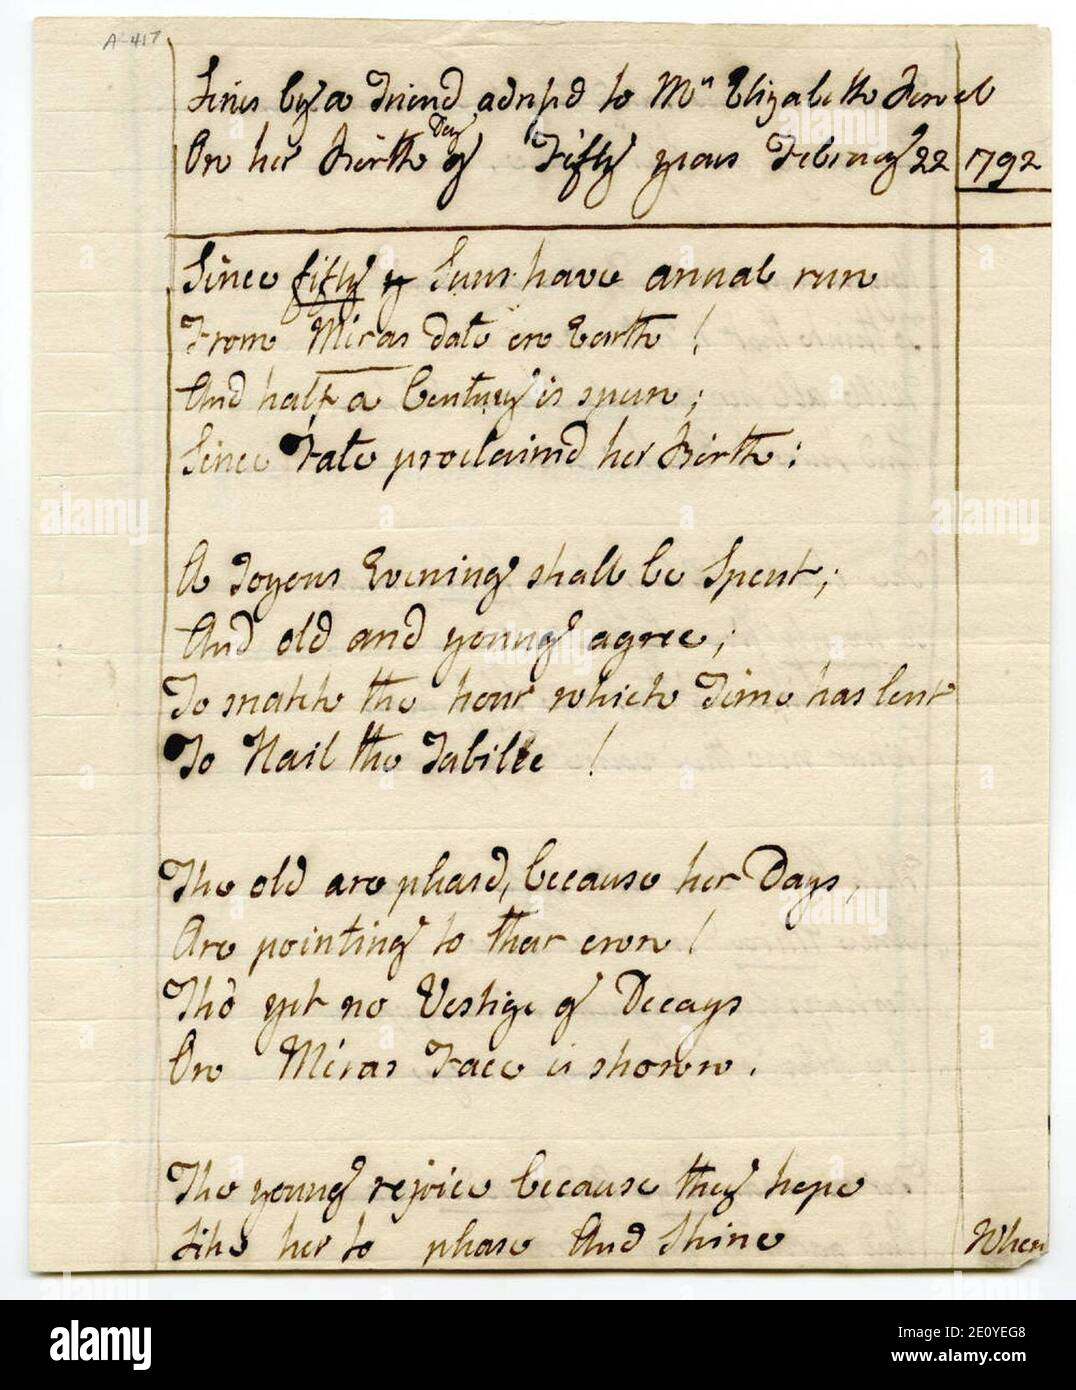 A-417
Lines by a Friend adrest to Mrs Elizabeth
On her Birth Day of Fifty years February 22 1792
Since fifty Suns have annual run
From Miras date on Earth !
And half a Century is spun ;
Since Fate proclaimd her Birth :
A Joyous Evening shall be Spent ;
And old and young agree ;
To snatch the hour which Time has lent
To Hail the Jubilee !
The old are pleasd, because her Days,
Are pointing to their own !
Tho yet no Vestige of Decays
On Miras Face is shown .
The young rejoice because they hope
Like her to please And Shine
When
alamy
Image ID: 2E0YEG8
www.alamy.com